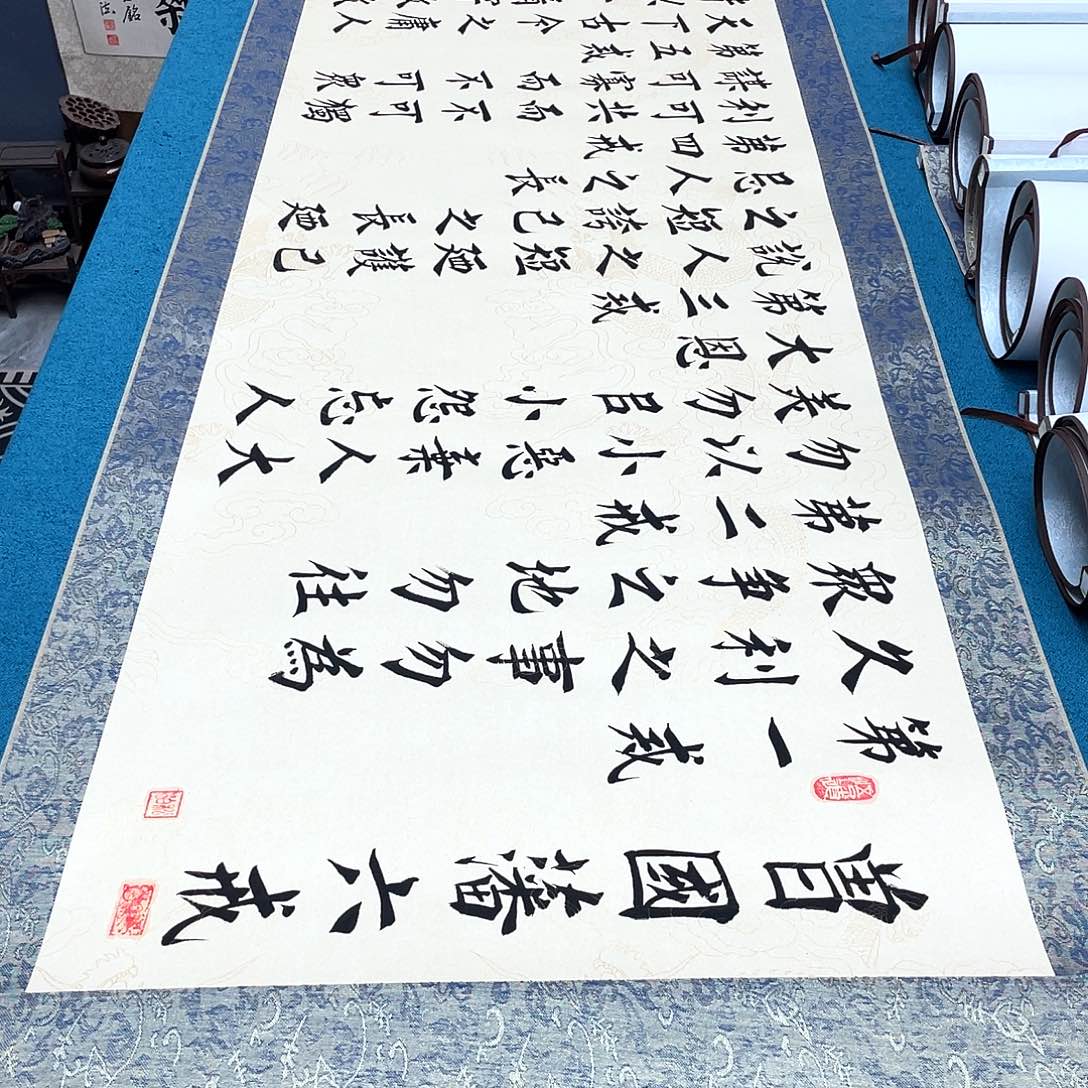 曾國藩六戒
第一戒
久利之事勿為
眾爭之地勿往
第二戒
勿以小惡棄人大
美勿㠯小怨忘人
大恩
第三戒
說人之短廼護己
之短誇己之長廼
忌人之長
第四戒
利可共而不可獨
謀可寡而不可眾
第五戒
天下古今之庸人